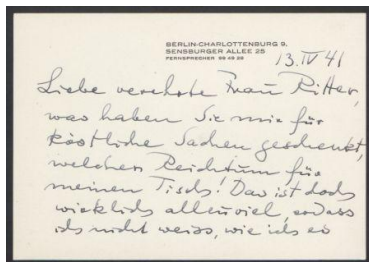 BERLIN-CHARLOTTENBURG 9,
SENSBURGER ALLEE 25
FERNSPRECHER 99 49 29
13. IV 41
Liebe verehrte Frau Ritter,
was haben Sie mir für
köstliche Sachen geschenkt,
welchen Reichtum für
meinen Tisch! Das ist doch
wirklich allzuviel, sodass
ich nicht weiss, wie ich es